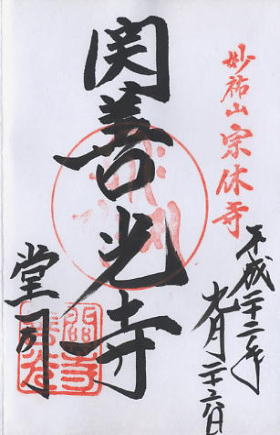 妙祐山宗休寺
平成二十二年
九月二十六日
関善光寺
堂司